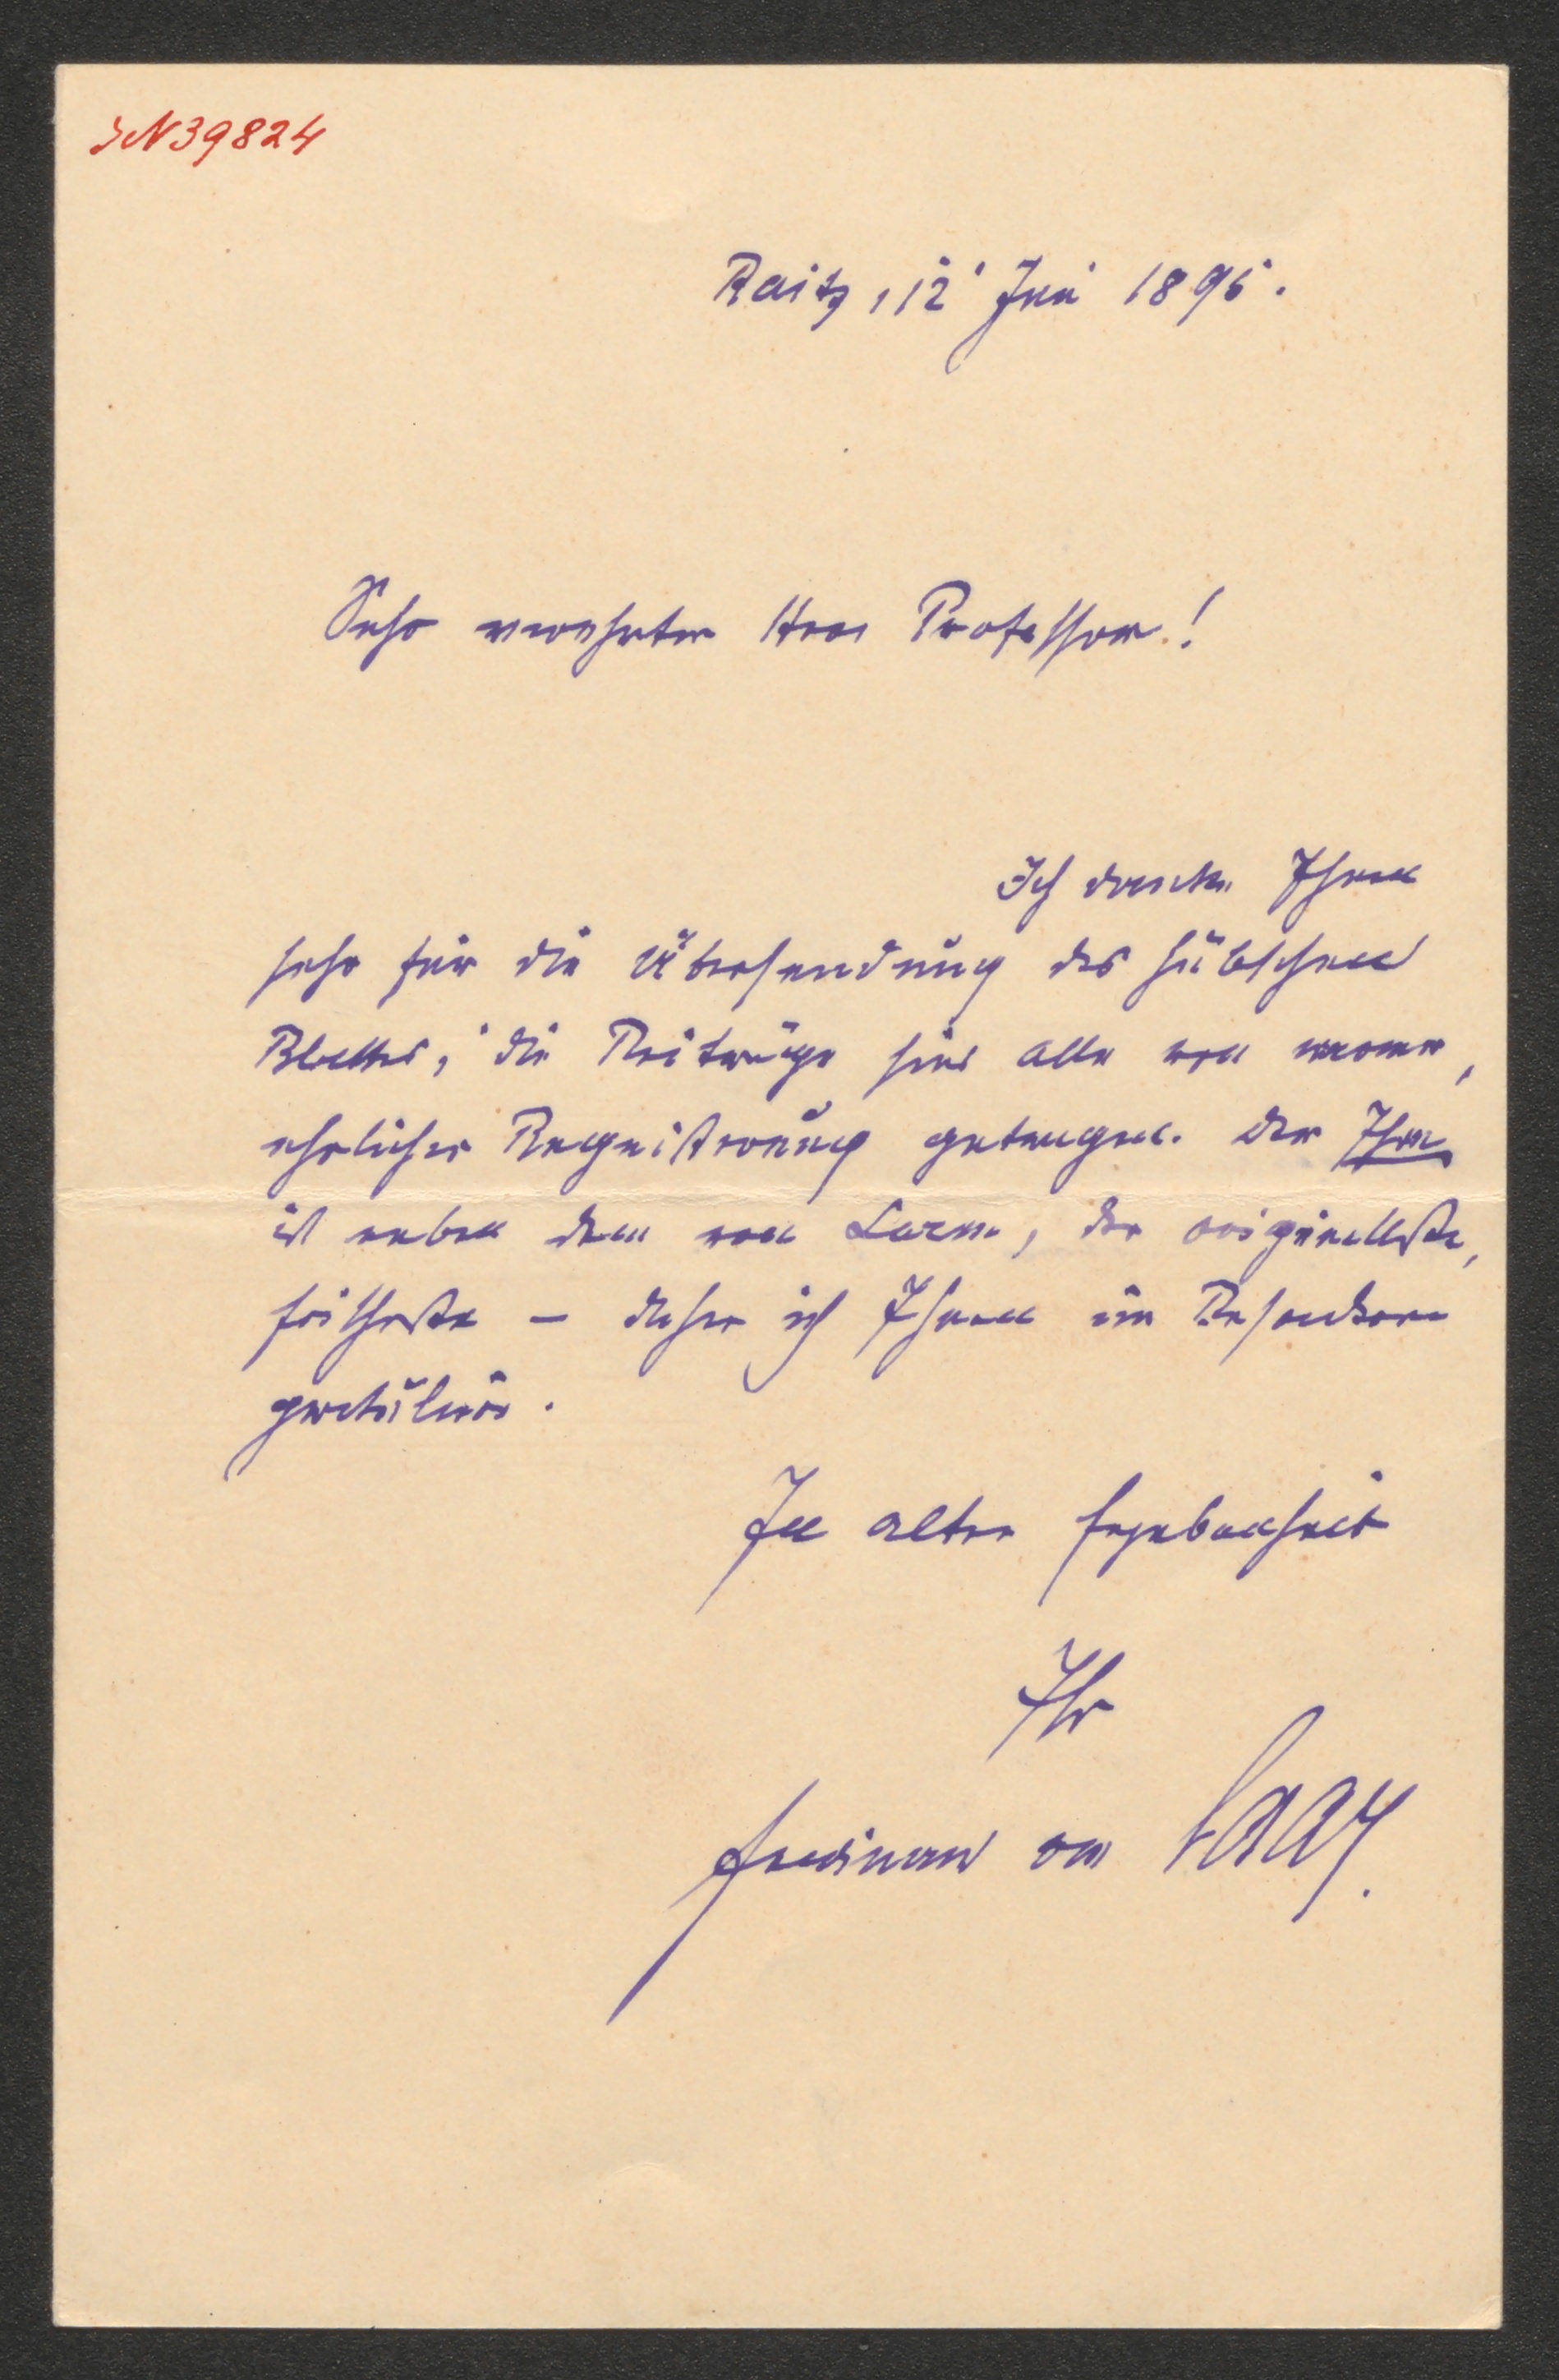 IN 39824
Raitz, 12' Juni 1895.
Sehr verehrter Herr Professor!
Ich danke Ihnen
sehr für die Übersendung des hübschen
Blattes; die Beiträge sind alle von warmer,
ehrlicher Begeisterung getragen. Der Ihre
ist neben dem von Lorm, der originellste,
frischeste – daher ich Ihnen im Besondern
gratulire.
In alter Ergebenheit
Ihr
Ferdinand von Saar.